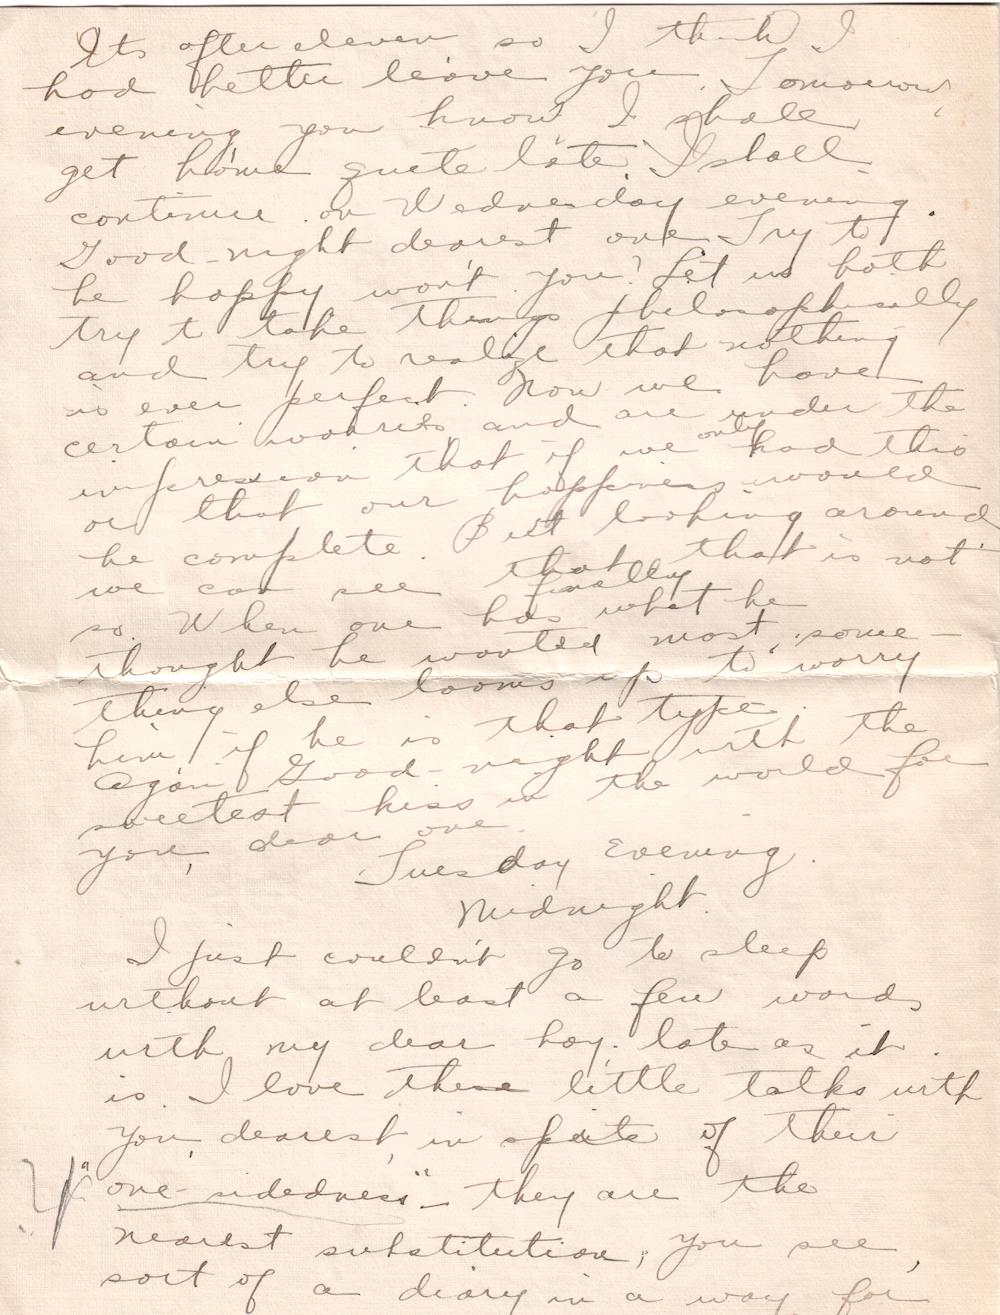 Its after eleven so I think I
had better leave you. Tomorrow
evening you know I shall
get home quite late. I shall
continue on Wednesday evening.
Good-night dearest one. Try to
be happy won't you? Let us both
try to take things philosophically
and try to realize that nothing
is ever perfect. Now we have
certain worries and are under the
impression that if we only had this
or that our happiness would
be complete. But looking around
we can see that that is not
so. When one finally has what he
thought he wanted most, some-
thing else looms up to worry
him, if he is that type.
Again Good-night with the
sweetest kiss in the world for
you, dear one.
Tuesday Evening.
Midnight.
I just couldn't go to sleep
without at least a few words
with my dear boy, late as it
is. I love these little talks with
you, dearest, in spite of their
"one-sidedness" - they are the
nearest substitution, you see,
sort of a diary in a way for